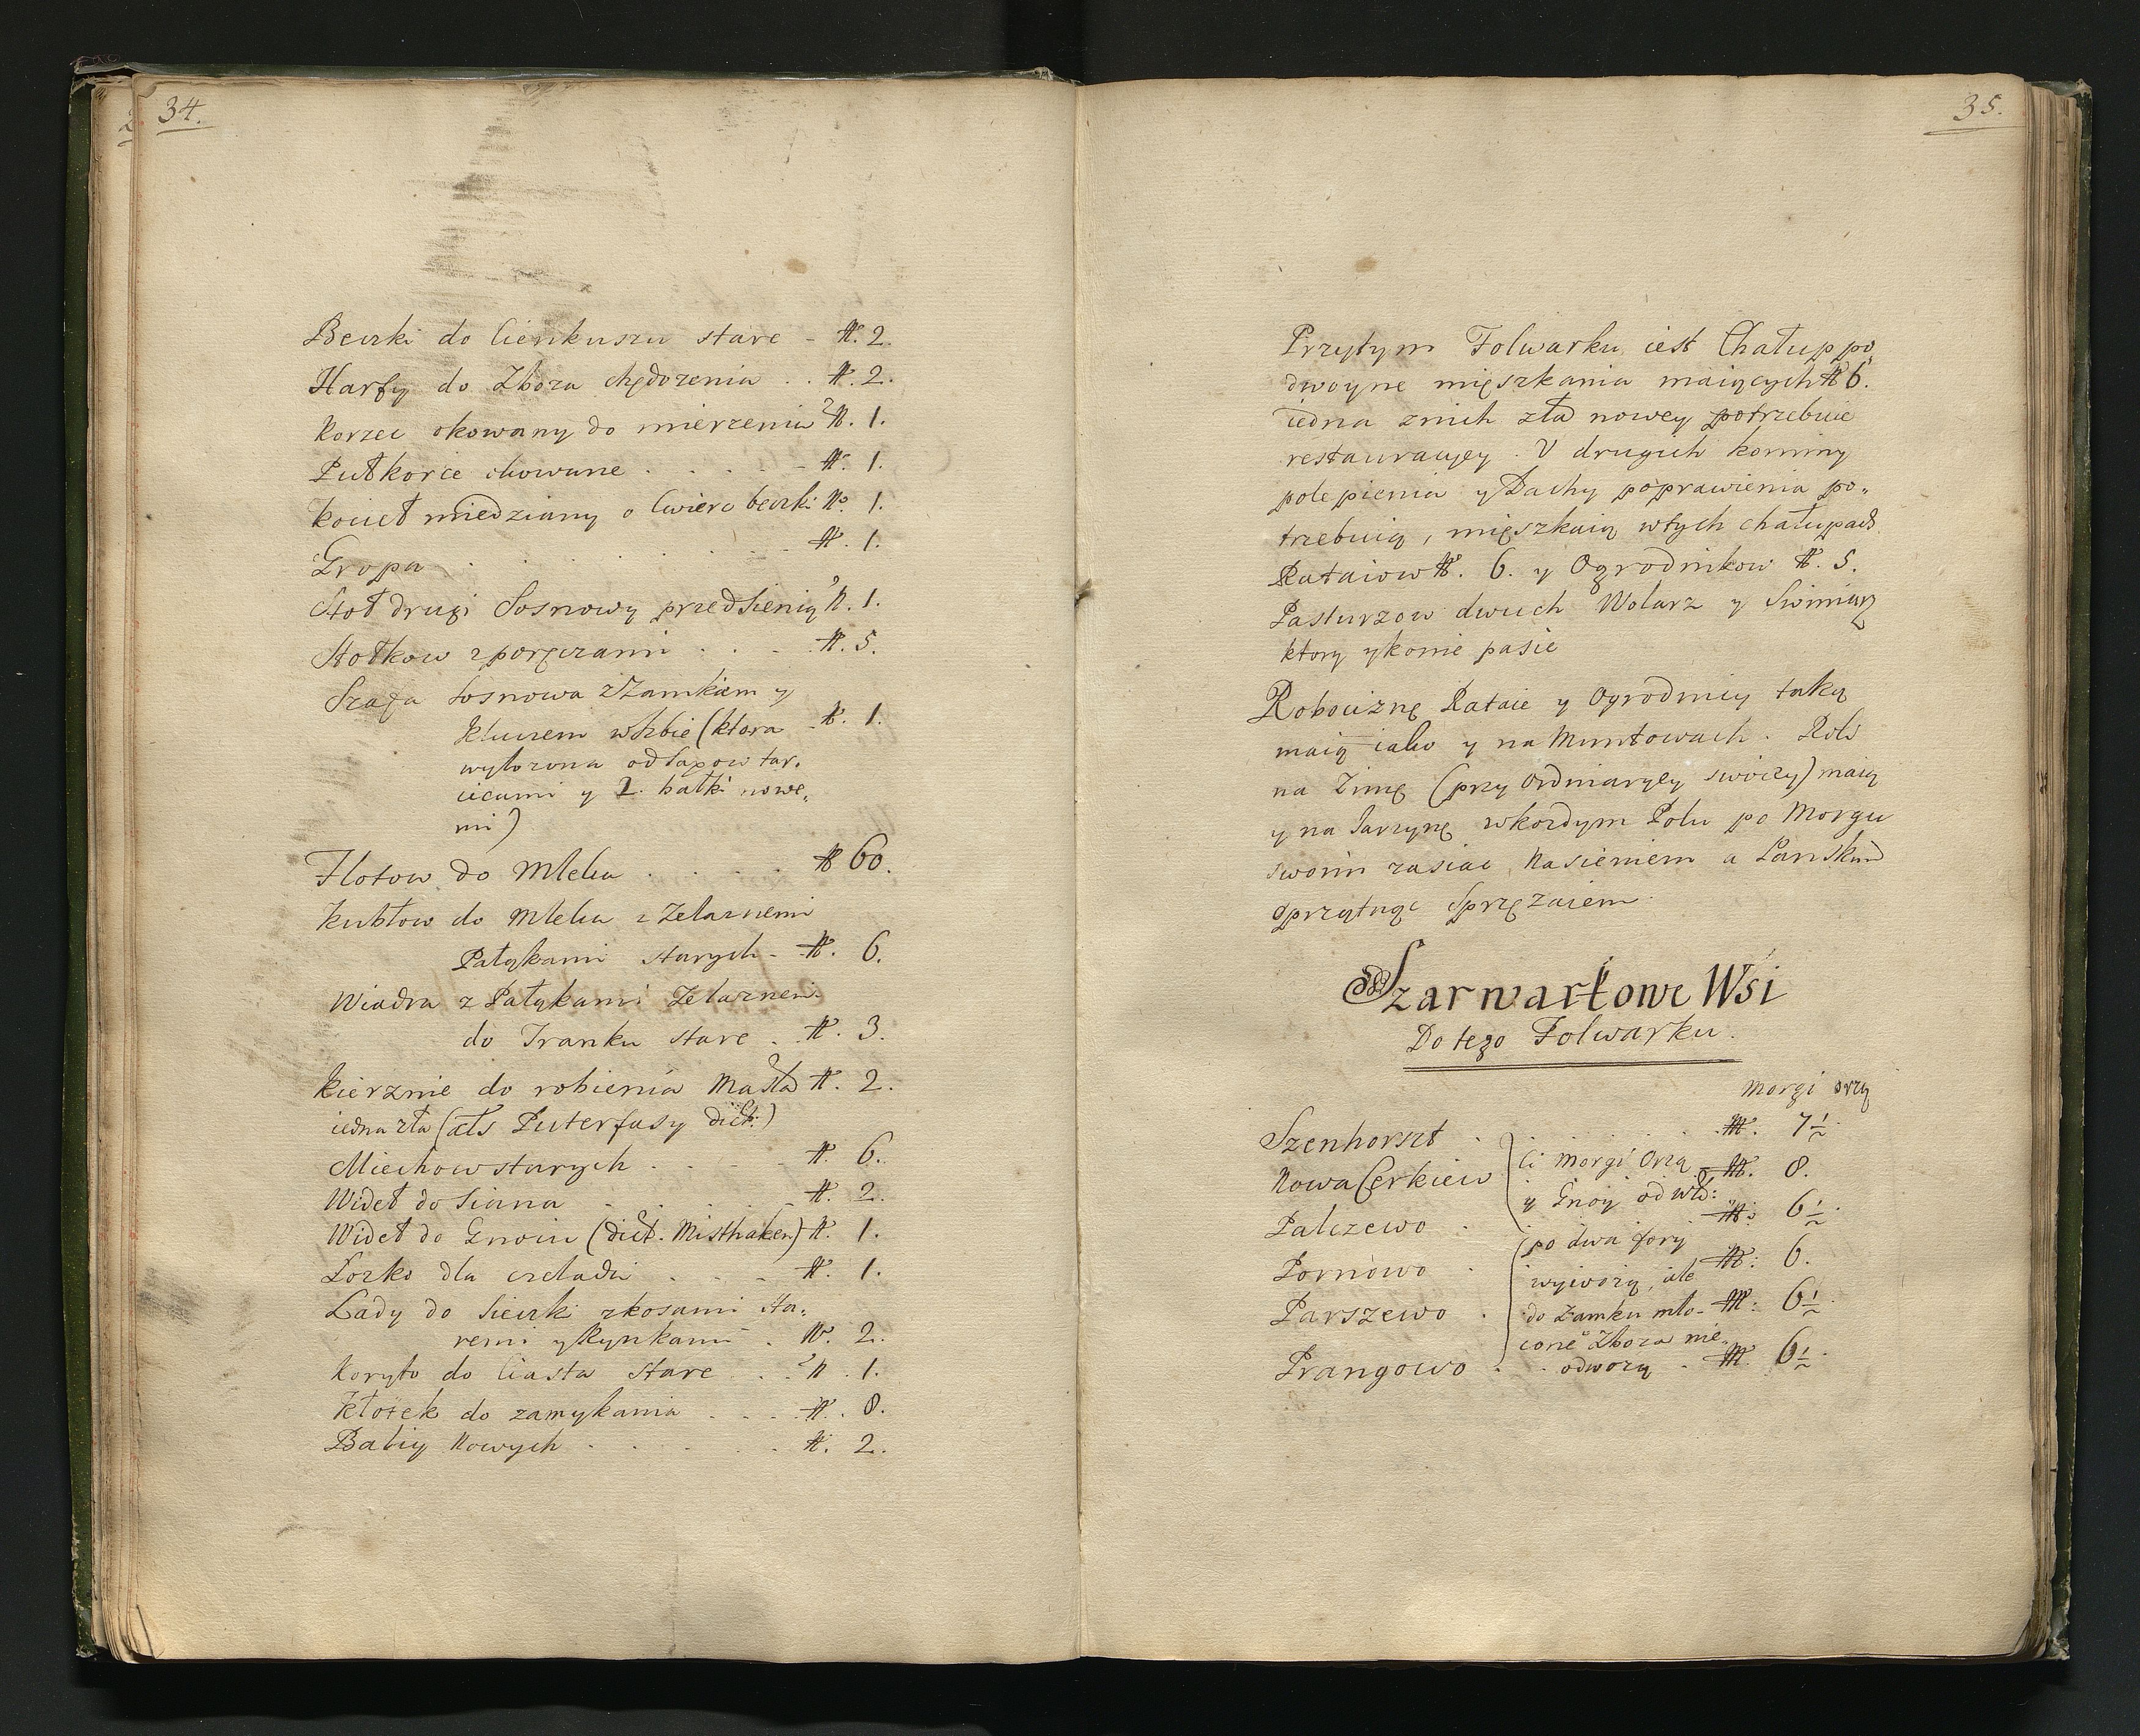 34.
Beczki do Cienkuszu stare - N. 2.
Harfy do Zboza chędozenia . . N. 2.
Korzec okowany do mierzenia N. 1.
Pułkorce okowane . . . . - N. 1.
Kocieł miedziany o Cwierc beczki No. 1.
Gropa . . . . . . N. 1.
Stoł drugi Sosnowy przed Sienią N. 1.
Stołkow z poręczami . . - N. 5.
Szafa Sosnowa z Zamkiem y
Kluczem w Izbie (ktora - N. 1.
wyłozona od Sapow tar,
cicami y 2. bałki nowe,
mi)
Flotow do Mleka . . . . N 60.
Kubłow do Mleka z Zelaznemi
Pałąkami starych - N. 6.
Wiadra z Pałąkami Zelaznemi
do Tranku stare . N. 3.
Kierznie do robienia Masła N. 2.
iedna zła (als Puterfasy dict:)
Miechow starych . . - - N. 6.
Wideł do Siana . . . - N. 2.
Wideł do Gnoiu (dict. Misthaken) N. 1.
Lozko dla czeladzi . . - N. 1.
Lady do Sieczki z kosami sta,
remi y Rynkami . N. 2.
Koryto do Ciasta stare . . N . 1.
Kłotek do zamykania . . . N. 8.
Baliy Nowych . . . . . N. 2.
35.
Przytym Folwarku iest Chałup po,
dwoyne mięszkania maiących N 6.
iedna znich zła nowey potrzebuie
restauracyey . U drugich kominy
polepienia y Dachy poprawienia po,
trzebuią, mięszkaią wtych chałupach
Rataiow N. 6. y Ogrodnikow N. 5.
Pasturzow dwuch Wolarz y Swiniarz
ktory y konie pasie
Robociznę Rataie y Ogrodnicy taką
maią iako y na Muntowach . Roli
na Zimę (przy Ordinaryey swoiey) maią
y na Jarzynę w kozdym Polu po Morgu
swoim zasiac Nasieniem a Panskim
sprzątnąc Sprzęzaiem.
Szarwarkowe Wsi
Do tego Folwarku.
Morgi orzą
Szenhorszt . . . . . M. 7½.
Nowa Cerkiew . Ci morgi Orzą M. 8.
y Gnoy od wł:
Palczewo . M: 6½.
po dwa fory
Pornowo . M: 6.
wywozą, ale
Parszewo . do Zamku mło- M: 6½.
cone Zboza nie,
Prangowo . . odwozą . M. 6½.